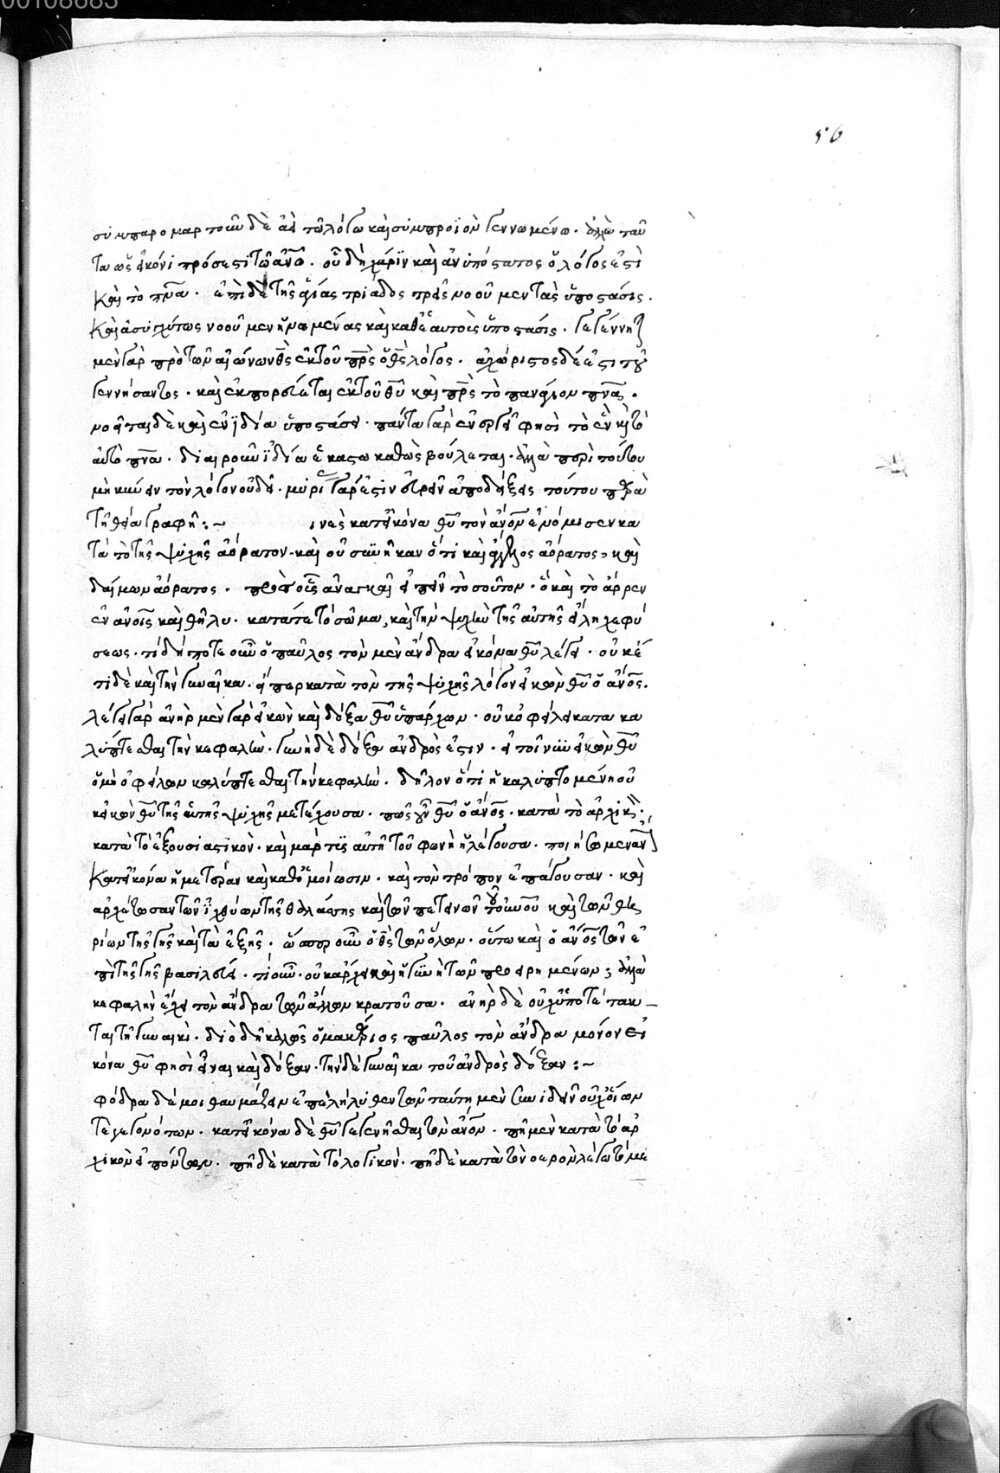 00108683
56
συμπαρομαρτοῦν δὲ ἀεὶ τῷ λόγῳ καὶ συμπροϊὸν γεννωμένῳ. ἀλλὰ ταῦ
τα ὡς εἰκόνι πρόσεστι τῷ ἀνῷ. οὗ δὴ χάριν καὶ ἀνυπόστατος ὁ λόγος ἐστὶ
καὶ τὸ πνα. ἐπὶ δὲ τῆς ἁγίας τριάδος τρεῖς νοοῦμεν τὰς ὑποστάσεις.
καὶ ἀσυγχύτως νοοῦμεν ἡνωμένας καὶ καθ' ἑαυτοῖς ὑποστάσεις. γεγέννηται
μὲν γὰρ πρὸ τῶν αἰώνων θς ἐκ τοῦ πρς ὁ θς λόγος. ἀχώριστος δέ ἐστι τοῦ
γεννήσαντος. καὶ ἐκπορεύεται ἐκ τοῦ θυ καὶ πρς τὸ πανάγιον πνα.
νοεῖται δὲ καὶ ἐν ἰδίᾳ ὑποστάσει. πάντα γὰρ ἐνεργεῖ φησὶ τὸ ἓν καὶ τὸ
αὐτὸ πνα. διαιροῦν ἰδίᾳ ἑκάστῳ καθὼς βούλεται. ἀλλὰ περὶ τούτου
μηκύνειν τὸν λόγον οὐ δεῖ. μυρί γὰρ ἐστὶν εὑρεῖν ἀποδείξεις τούτου παρὰ
τῇ θείᾳ γραφῇ :~ τινὲς κατ' εἰκόνα θυ τὸν ἀνον ἐνόμισεν κα
τὰ τὸ τῆς ψυχῆς ἀόρατον. καὶ οὐ συνῆκαν ὅτι καὶ ἄγγελος ἀόρατος, καὶ
δαίμων ἀόρατος. πρὸς οἷς ἀναγκὴ εἰπεῖν τοσοῦτον. ὅ καὶ τὸ ἄρρεν
ἐν ἀνοις καὶ θῆλυ. κατά τε τὸ σῶμα, καὶ τὴν ψυχὴν τῆς αὐτῆς εἴληχε φύ
σεως. τί δή ποτε οὖν ὁ παῦλος τὸν μὲν ἄνδρα εἰκόνα θυ λέγει. οὐκέ
τι δὲ καὶ τὴν γυναῖκα. εἴπερ κατὰ τὸν τῆς ψυχῆς λόγον εἰκὼν θυ ὁ ἀνος.
λέγει γὰρ ἀνὴρ μὲν γὰρ εἰκὼν καὶ δόξα θυ ὑπάρχων. οὐκ ὀφείλει κατακα
λύπτεσθαι τὴν κεφαλήν. γυνὴ δὲ δόξα ἀνδρός ἐστιν. εἰ τοίνυν εἰκὼν θυ
ὁ μὴ ὀφείλων καλύπτεσθαι τὴν κεφαλήν. δῆλον ὅτι ἡ καλυπτομένη οὐ
κ εἰκὼν θυ τῆς αὐτῆς ψυχῆς μετέχουσα. πῶς οὖν θυ ὁ ἀνος. κατὰ τὸ ἀρχικόν;
κατὰ τὸ ἐξουσιαστικόν. καὶ μάρτυς αὐτὴ τοῦ φωνὴ ἡ λέγουσα. ποιήσωμεν ἀνον
κατ' εἰκόνα ἡμετέραν καὶ καθ' ὁμοίωσιν. καὶ τὸν τρόπον ἐπάγουσαν. καὶ
ἀρχέτωσαν τῶν ἰχθύων τῆς θαλάσσης καὶ τῶν πετεινῶν τοῦ οὐνοῦ καὶ τῶν θη
ρίων τῆς γῆς καὶ τὰ ἑξῆς. ὥσπερ οὖν ὁ θς τῶν ὅλων. οὕτω καὶ ὁ ἀνος τῶν ἐ
πὶ τῆς γῆς βασιλεύει. τί οὖν. οὐκ ἄρχει καὶ ἡ γυνὴ τῶν προειρημένων; ἀλλὰ
κεφαλὴν ἔχει τὸν ἄνδρα τῶν ἄλλων κρατοῦσα. ἀνὴρ δὲ οὐχ ὑποτέτακ
ται τῇ γυναικί. διὸ δὴ καλῶς ὁ μακάριος παῦλος τὸν ἄνδρα μόνον εἰ
κόνα θυ φησὶ εἶναι καὶ δόξαν. τὴν δὲ γυναῖκα τοῦ ἀνδρὸς δόξαν :~
φόδρα δέ μοι θαυμάζειν ἐπελήλυθεν τῶν ταύτῃ μὲν
κατ' εἰκόνα δὲ θυ γεγενῆσθαι τὸν ἀνον. πῆ μὲν κατὰ τὸ ἀρ
χικὸν εἰπόντων. πῆ δὲ κατὰ τὸ λογικόν. πῆ δὲ κατὰ τὸν